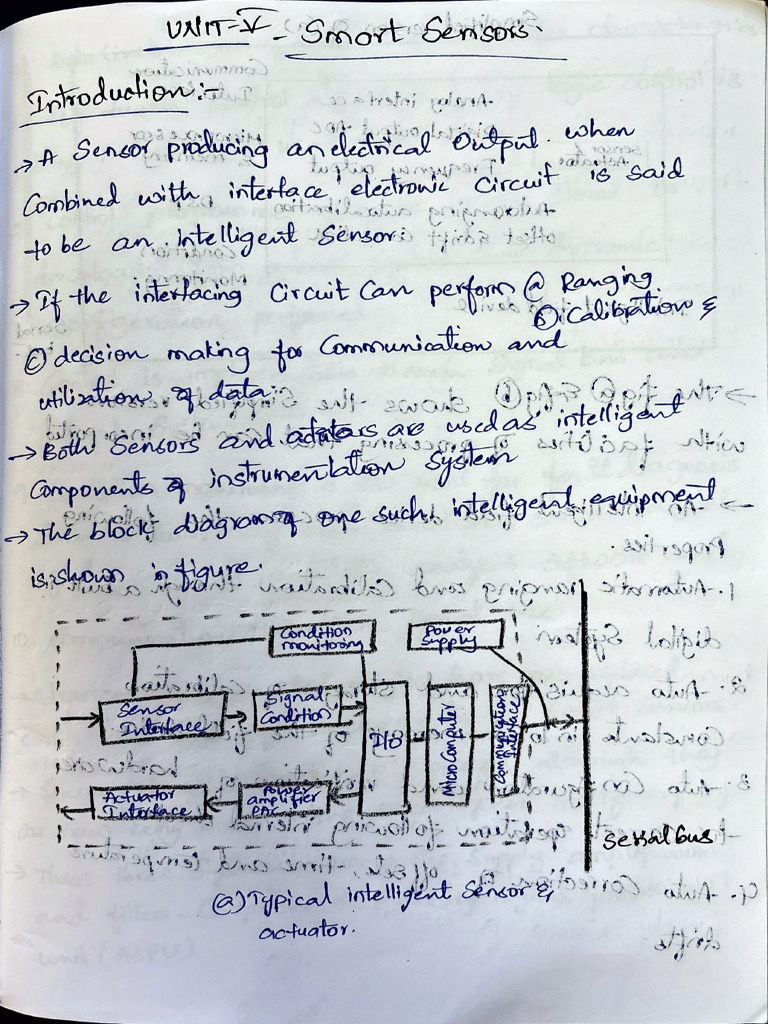 UNIT-V - Smart Sensors.
Introduction:-
→ A Sensor producing an electrical Output. when
Combined with interface electronic Circuit is said
to be an intelligent Sensor.
→ If the interfacing Circuit Can perform ⓐ Ranging
ⓑ Calibration &
ⓒ decision making for Communication and
utilization of data.
→ Both Sensors and are used as intelligent
Components of instrumentation System
→ The block diagram of one such intelligent equipment
is shown in figure.
Condition monitoring
Power Supply
Sensor Interface
Signal Condition
I/O
MicroComputer
Communications Interface
Actuator Interface
Power amplifier
Serial bus
(a) Typical intelligent Sensor &
actuator.